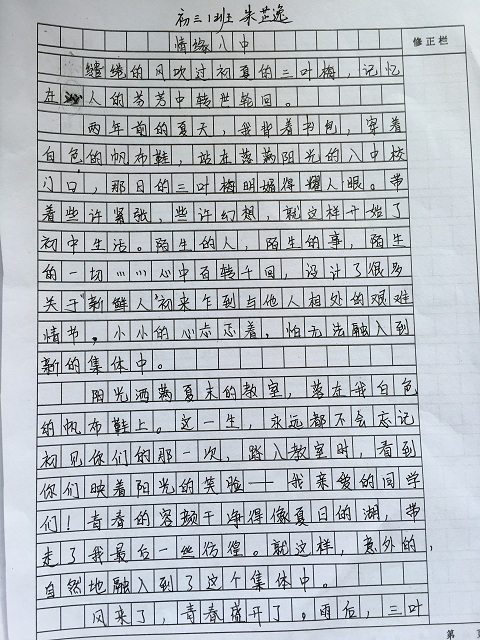 初三1班 朱芷逸
情缘八中
修正栏
缱绻的风吹过初夏的三叶梅，记忆
在人的芬芳中转世轮回。
两年前的夏天，我背着书包，穿着
白色的帆布鞋，站在落满阳光的八中校
门口，那日的三叶梅明媚得耀人眼。带
着些许紧张，些许幻想，就这样开始了
初中生活。陌生的人，陌生的事，陌生
的一切……心中百转千回，设计了很多
关于"新鲜人"初来乍到与他人相处的艰难
情书，小小的心忐忑着，怕无法融入到
新的集体中。
阳光洒满夏末的教室，落在我白色
的帆布鞋上。这一生，永远都不会忘记
初见你们的那一次，踏入教室时，看到
你们映着阳光的笑脸——我亲爱的同学
们！青春的容颜干净得像夏日的湖，带
走了我最后一丝彷徨。就这样，意外的，
自然地融入到了这个集体中。
风来了，青春盛开了。雨后，三叶
第